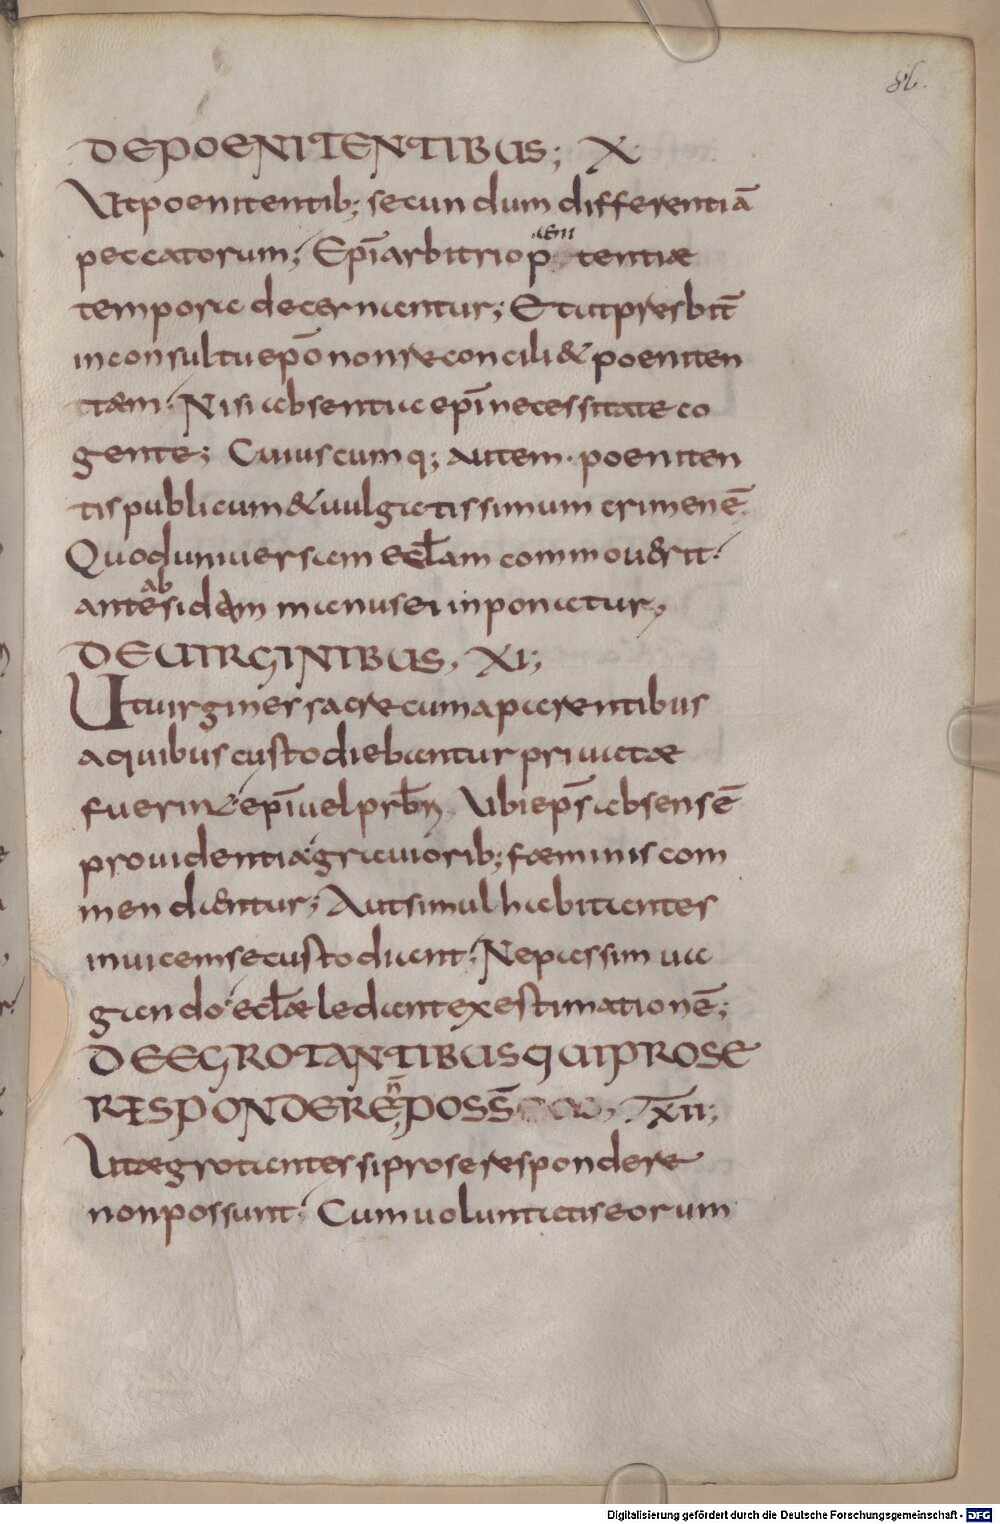 86.
DE POENITENTIBUS; X
Ut poenitentib; secundum differentiā
peccatorum; Epī arbitrio p tentiae
tempora decernantur; Et ut presbit̄
inconsultu epō non reconcili& poeniten
tiam. Nisi absentia epī necessitate co
gente; Cuiuscumq; autem. poeniten
tis publicum & uulgatissimum crimen ē.
Quod uniuersam eclam commouerit.
ante absidem manus ei inponatur,
DE UIRGINIBUS, XI;
Ut uirgines sacre cum a parentibus
a quibus custodiebantur priuatae
fuerint epī uel prbri Ubi eps absens ē
prouidentia grauiorib; faeminis com
mendentur; Aut simul habitantes
inuicem se custodiant. Ne passim ua
gando eclae ledant existimationē;
DE EGROTANTIBUS QUI PRO SE
RESPONDERE n̄ POSS̄ XII;
Ut aegrotantes si pro se respondere
non possunt. Cum uoluntatis eorum
Digitalisierung gefördert durch die Deutsche Forschungsgemeinschaft - DFG